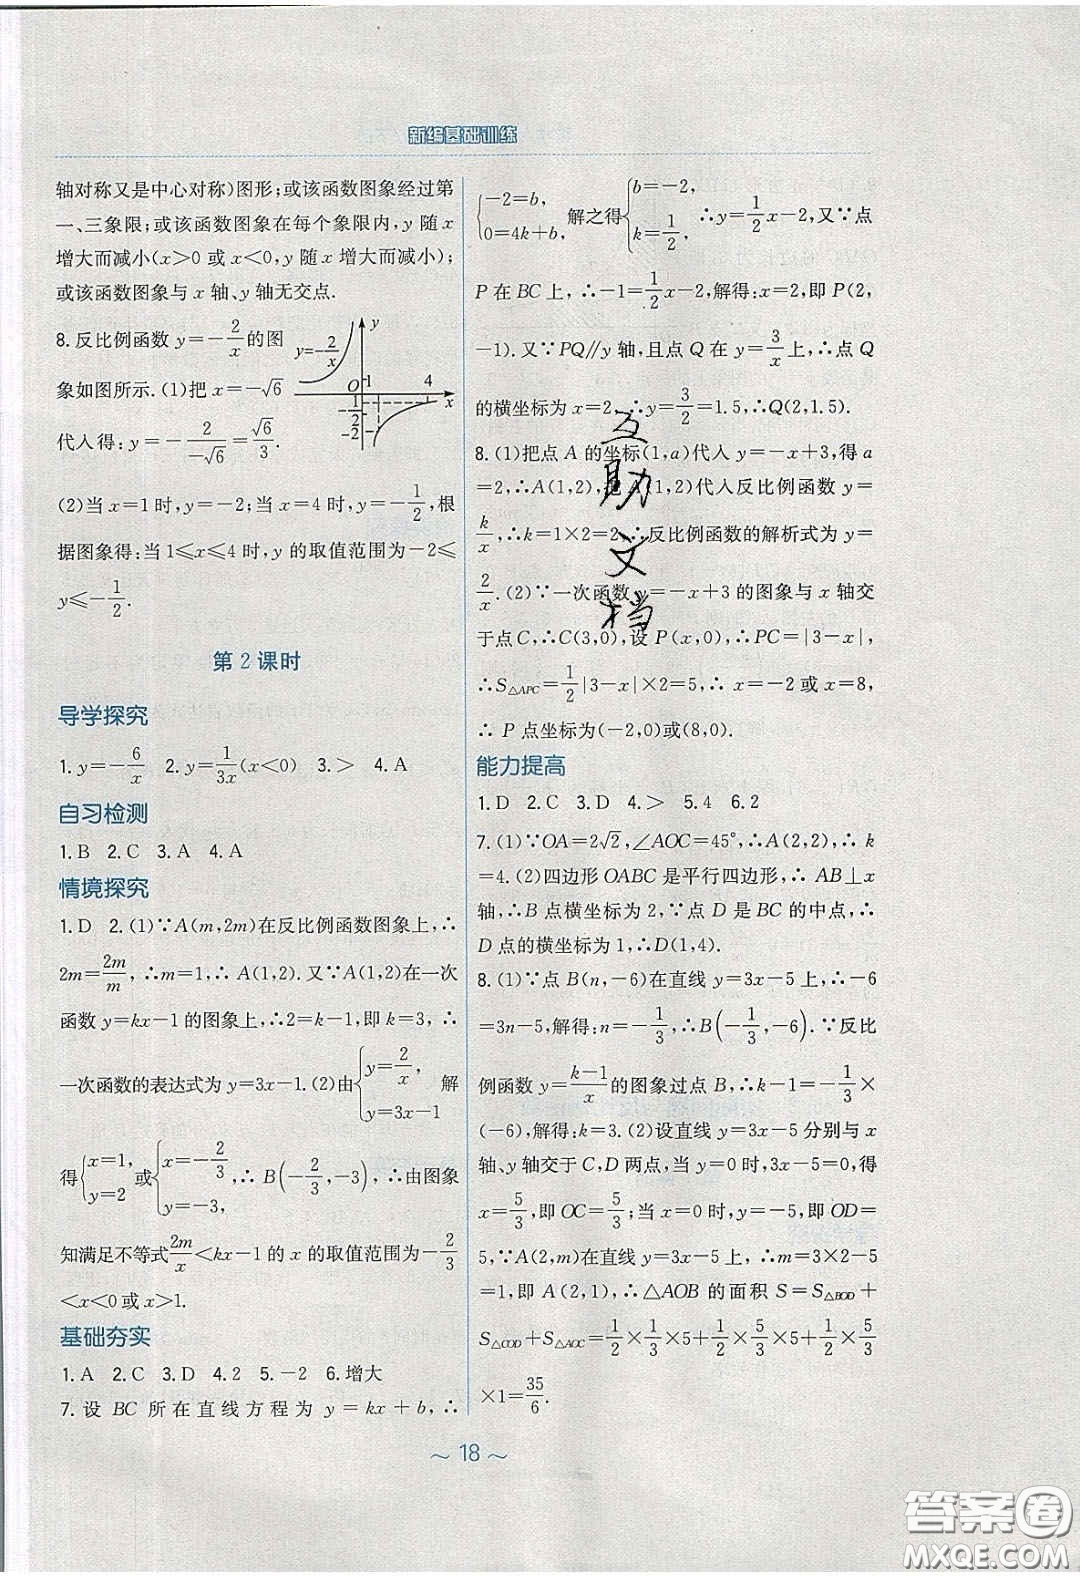 新编基础训练
轴对称又是中心对称)图形;或该函数图象经过第
一、三象限;或该函数图象在每个象限内,y 随 x
增大而减小(x>0 或 x<0,y 随 x 增大而减小);
或该函数图象与 x 轴、y 轴无交点.
8.反比例函数 y=-2/x 的图
象如图所示.(1)把 x=-√6
代入得:y=-2/(-√6)=√6/3.
y=-2/x
y
O 1 4 x
-1/2
-2
(2)当 x=1 时,y=-2;当 x=4 时,y=-1/2,根
据图象得:当 1≤x≤4 时,y 的取值范围为-2≤
y≤-1/2.
第 2 课时
导学探究
1.y=-6/x 2.y=1/3x(x<0) 3.> 4.A
自习检测
1.B 2.C 3.A 4.A
情境探究
1.D 2.(1)∵A(m,2m)在反比例函数图象上,∴
2m=2m/m,∴m=1,∴A(1,2).又∵A(1,2)在一次
函数 y=kx-1 的图象上,∴2=k-1,即 k=3,∴
一次函数的表达式为 y=3x-1.(2)由{y=2/x, y=3x-1 解
得{x=1, y=2 或{x=-2/3, y=-3, ∴B(-2/3,-3),∴由图象
知满足不等式2m/x<kx-1 的 x 的取值范围为-2/3
<x<0 或 x>1.
基础夯实
1.A 2.C 3.D 4.2 5.-2 6.增大
7.设 BC 所在直线方程为 y=kx+b,∴
{-2=b, 0=4k+b, 解之得{b=-2, k=1/2, ∴y=1/2x-2,又∵点
P 在 BC 上,∴-1=1/2x-2,解得:x=2,即 P(2,
-1).又∵PQ//y 轴,且点 Q 在 y=3/x上,∴点 Q
的横坐标为 x=2,∴y=3/2=1.5,∴Q(2,1.5).
8.(1)把点 A 的坐标(1,a)代入 y=-x+3,得 a
=2,∴A(1,2),把 A(1,2)代入反比例函数 y=
k/x,∴k=1×2=2,∴反比例函数的解析式为 y=
2/x.(2)∵一次函数 y=-x+3 的图象与 x 轴交
于点 C,∴C(3,0),设 P(x,0),∴PC=|3-x|,
∴S△APC=1/2|3-x|×2=5,∴x=-2 或 x=8,
∴P 点坐标为(-2,0)或(8,0).
能力提高
1.D 2.C 3.D 4.> 5.4 6.2
7.(1)∵OA=2√2,∠AOC=45°,∴A(2,2),∴k
=4.(2)四边形 OABC 是平行四边形,∴AB⊥x
轴,∴B 点横坐标为 2,∵点 D 是 BC 的中点,∴
D 点的横坐标为 1,∴D(1,4).
8.(1)∵点 B(n,-6)在直线 y=3x-5 上,∴-6
=3n-5,解得:n=-1/3,∴B(-1/3,-6).∵反比
例函数 y=(k-1)/x的图象过点 B,∴k-1=-1/3×
(-6),解得:k=3.(2)设直线 y=3x-5 分别与 x
轴、y 轴交于 C,D 两点,当 y=0 时,3x-5=0,得
x=5/3,即 OC=5/3;当 x=0 时,y=-5,即 OD=
5,∵A(2,m)在直线 y=3x-5 上,∴m=3×2-5
=1,即 A(2,1),∴△AOB 的面积 S=S△BOD+
S△COD+S△AOC=1/2×1/3×5+1/2×5/3×5+1/2×5/3
×1=35/6.
互助文档
~ 18 ~
答案圈
MXQE.COM